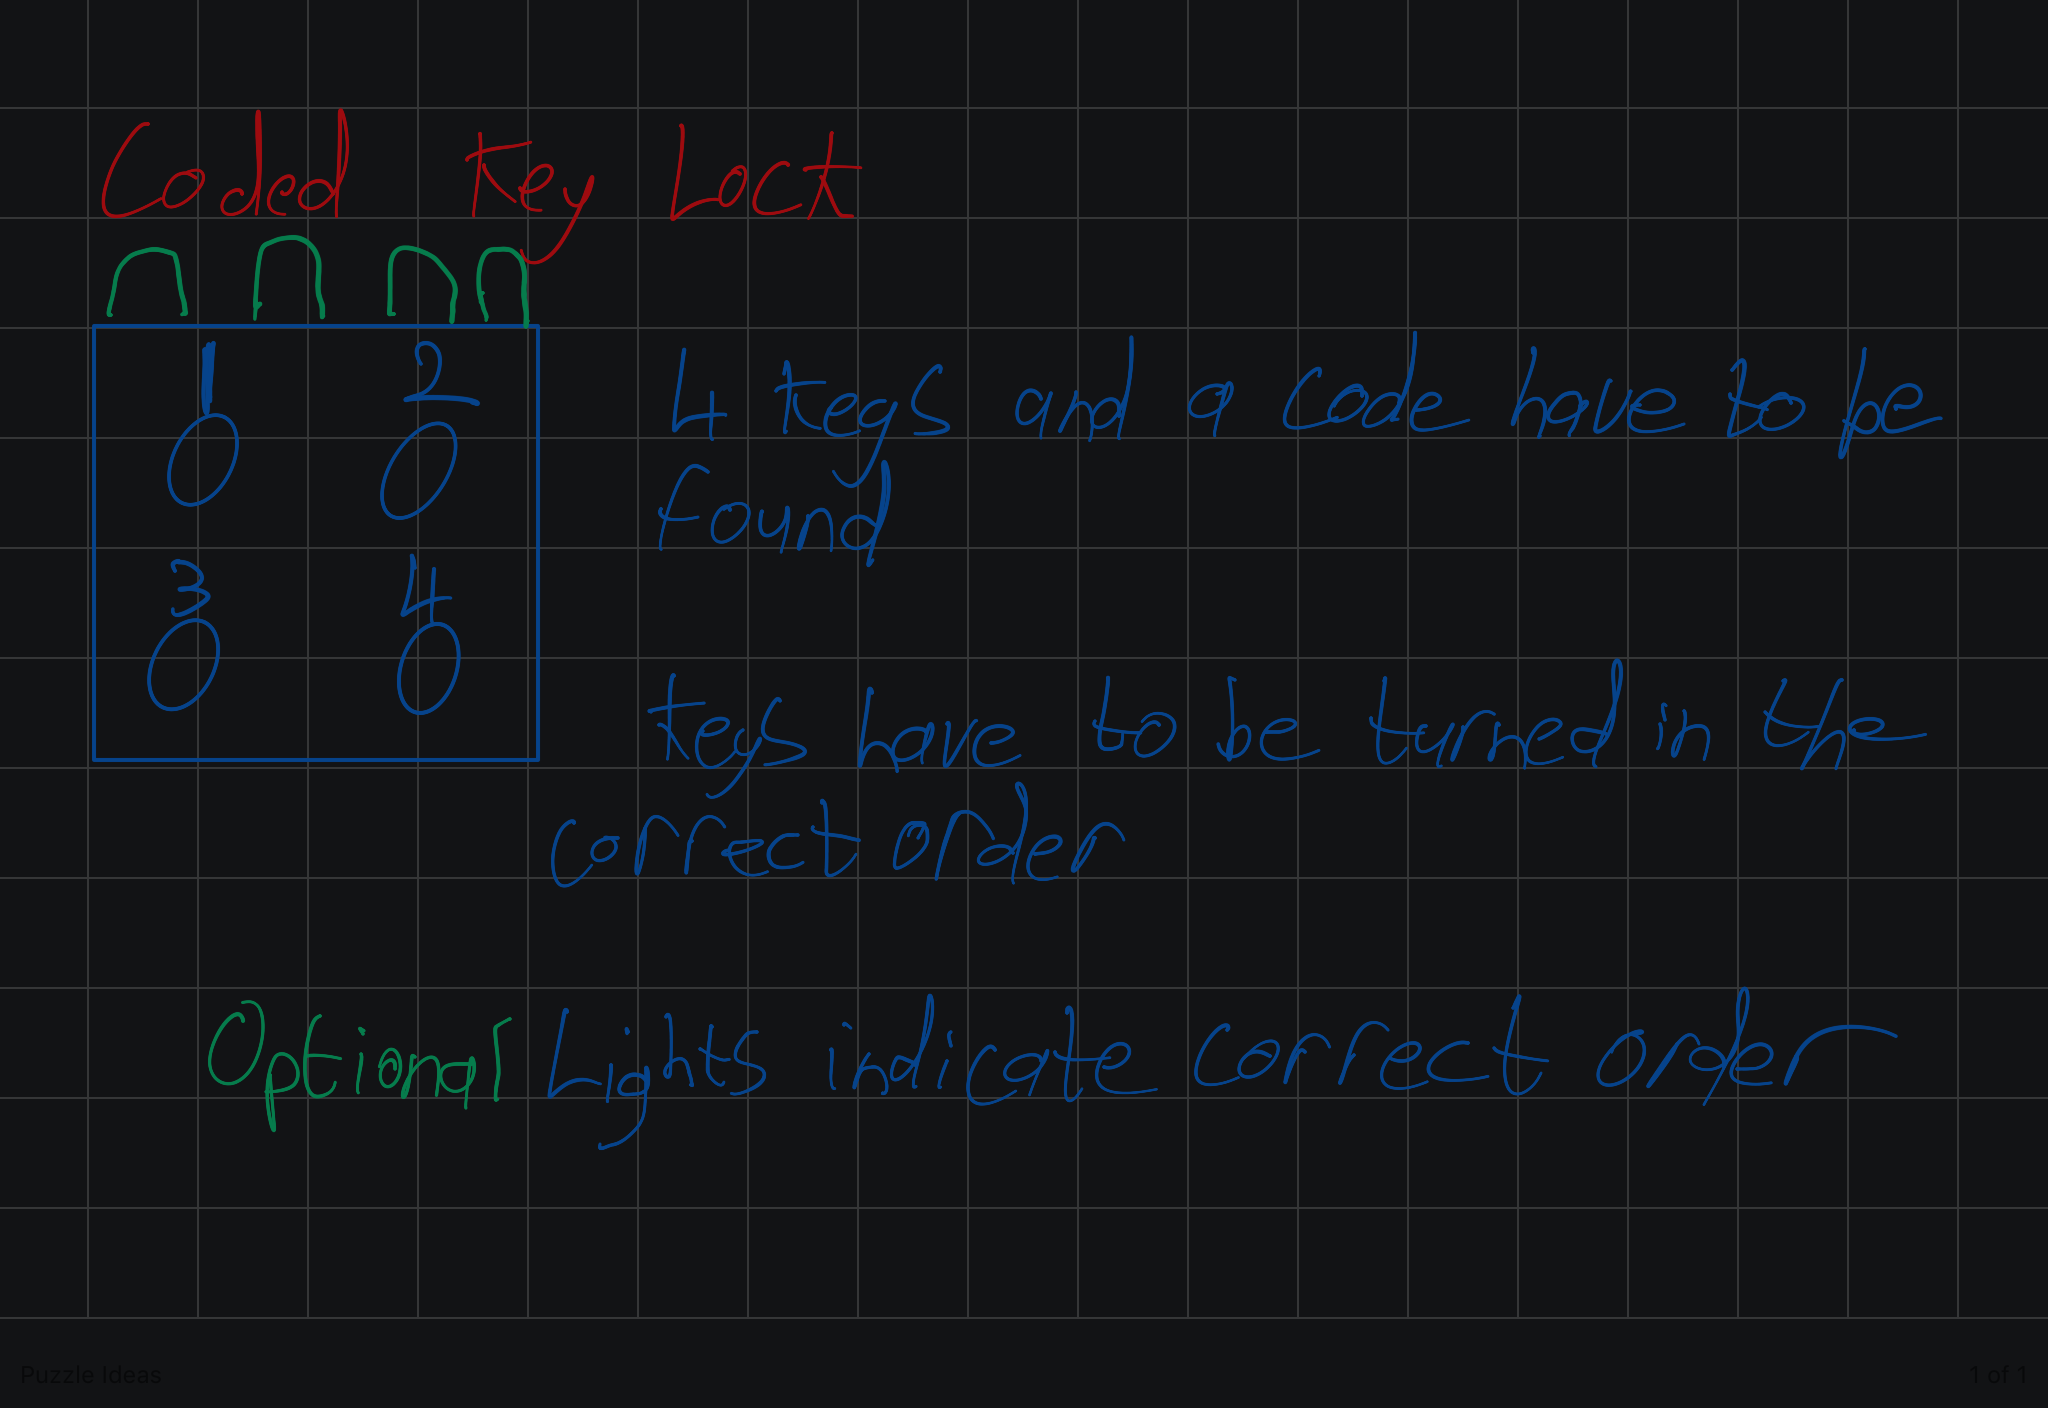 Coded Key Lock
1 2
3 4
4 keys and a code have to be
found
keys have to be turned in the
correct order
Optional Lights indicate correct order
Puzzle Ideas
1 of 1